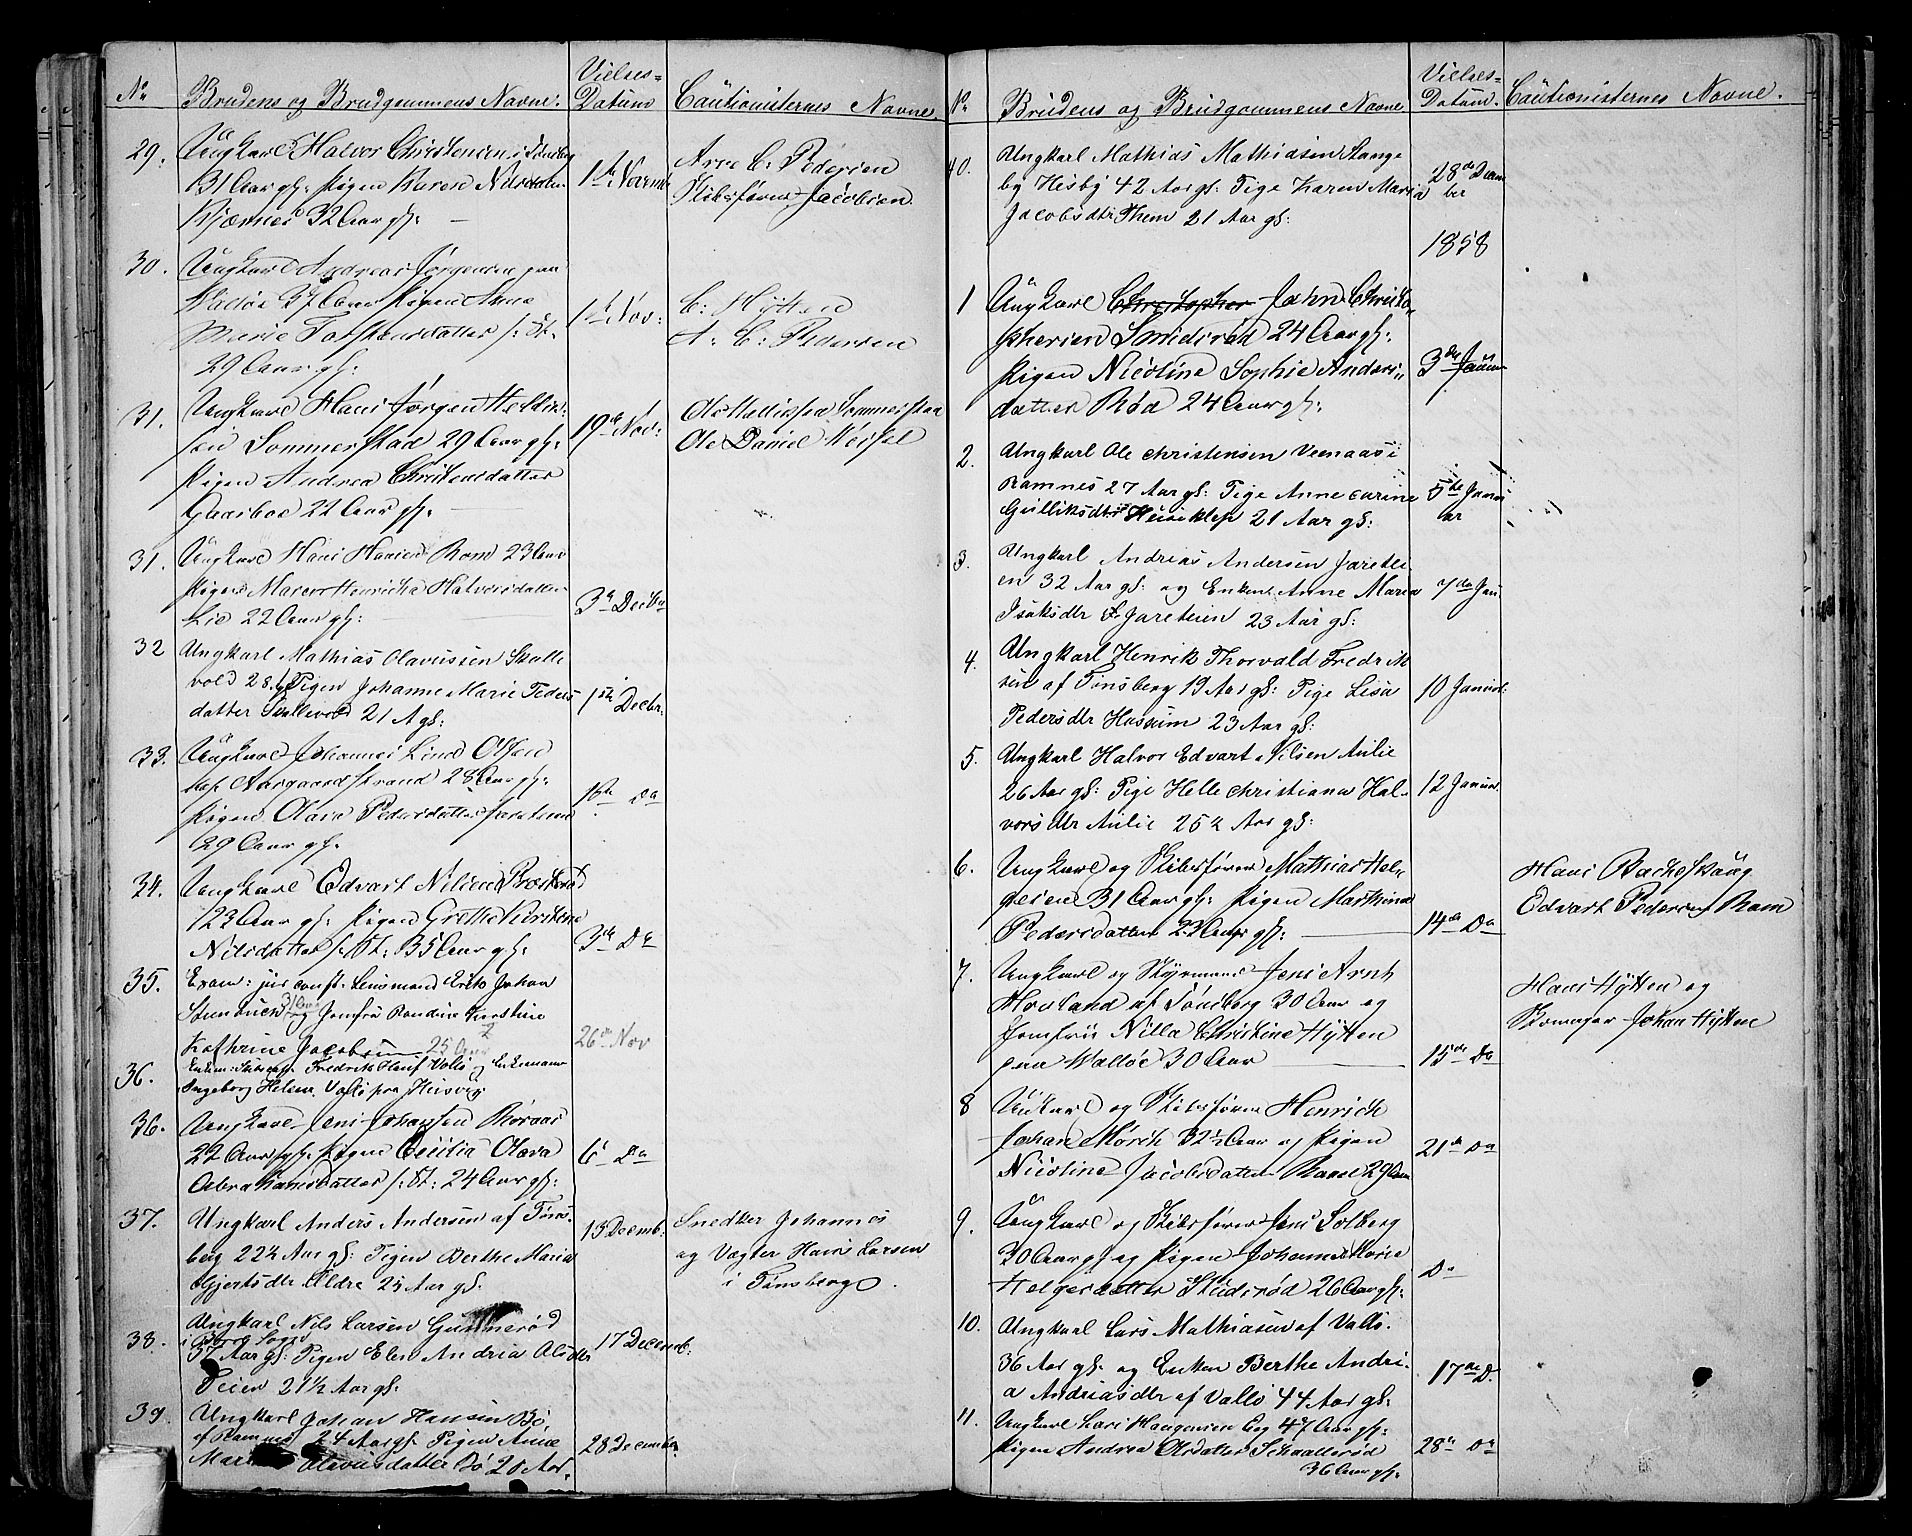 No Brudens og Brudgommens Navne. Vielses= Datum Cautionisternes Navne.
29. Ungkarl Halvor Christensen i
31 Aar gl: Pigen Karen Nilsdatter
Bjærnes 32 Aar gl:
1ste Novemb
Arne C. Pedersen
Skibsfører Jacobsen
30. Ungkarl Andreas Jørgensen paa
Valløe 37 Aar Pigen Anne
Marie Torstensdatter s: St.
29 Aar gl:
1ste Nov:
C: Hytten
A: C: Pedersen
31. Ungkarl Hans Jørgen
sen Sommerstad 29 Aar gl:
Pigen Andrea Christensdatter
22 Aar gl:
19de Nov:
Ole Sommerstad
Ole Daniel
31. Ungkarl Hans Hansen Rom 23 Aar
Pigen Maren Henricka Halvorsdatter
Lie 22 Aar gl:
3de Decbr
32 Ungkarl Mathias Olavussen Skalle
vold 28. gl Pigen Johanne Marie Peders
datter Skallevold 21 A gl:
1ste Decbr:
33. Ungkarl Johannes Lind Olsen
af Aargaardstrand 28 Aar gl:
Pigen Olave Pedersdatter Jareteien
29 Aar gl:
16de Do
34. Ungkarl Edvart Nilsen
23 Aar gl: Pigen Grethe Kirstine
Nilsdatter s: St: 35 Aar gl:
3de Do
35. Exam: jur const: Lensmand Erik Johan
Steenbuck 31 Aar og Jomfru Randine Kirstine
Kathrine Jacobsen 25 Aar
26de Nov
36. Enkem: Fredrik Hauf Vallö og
Ingeborg Helene Vallö fra Husvig
36. Ungkarl Jens Johansen Røraas
22 Aar gl: Pigen Cecilia Olava
Abrahamsdatter s: St: 24 Aar gl:
6te Do
37. Ungkarl Anders Andersen af Töns-
berg 22½ Aar gl: Pigen Berthe Maria
Gjertsdtr Oldre 25 Aar gl:
13 Decemb:
Snedker Johannes
og Vægter Hans Larsen
i Tönsberg.
38. Ungkarl Nils Larsen Gunnerød
i Borre Sogn
37 Aar gl: Pigen Elen Andria Olsdtr
Teien 21½ Aar gl:
17 Decemb:
39. Ungkarl Johan Hansen Bö.
af Ramnes 24 Aar gl: Pigen Anne
Olavusdatter Bö 20 Aar.
28 December
No Brudens og Brudgommens Navne Vielses= Datum. Cautionisternes Navne.
40. Ungkarl Mathias Mathiasen Aange
by Hesby 42 Aar gl: Pige Karen Maria
Jacobsdtr Them 21 Aar gl:
28de Decem
ber
1858
1 Ungkarl Christopher John Christo-
phersen Smidsrød 24 Aar gl:
Pigen Nicoline Sophie Anders-
datter Rød 24 Aar gl:
3die Januar
2. Ungkarl Ole Christensen Veenaas i
Ramnes 27 Aar gl: Pige Anne Carine
Gulliksdtr 21 Aar gl:
5te Janu
ar
3. Ungkarl Andrias Andersen Jaretei-
en 32 Aar gl: og Enken Anne Maria
Isaksdtr Jareteien 23 Aar gl:
7de Jan
4. Ungkarl Henrik Thorvald Fredrik
sen af Tönsberg 19 Aar gl: Pige Lisa
Pedersdtr Hussum 23 Aar gl:
10 Januar:
5. Ungkarl Halvor Edvart Nilsen Aulie
26 Aar gl: Pige Helle Christiana Hal-
vorsdtr Aulie 25½ Aar gl:
12 Januar
6. Ungkarl og Skibsfører Mathias Hel-
gesen 31 Aar gl: Pigen Marthina
Pedersdatter 22 Aar gl:
14de Do
Hans Bacheskaug
Edvart Pedersen Ram
7. Ungkarl og Styrmand Jens Arnt
Hovland af Tönsberg 30 Aar og
Jomfru Nilla Christine Hytten
paa Valløe 30 Aar
15de Do
Hans Hytten og
Skomager Johan Hytten
8 Unkarl og Skibsfører Henrich
Johan Mørch 32½ Aar og Pigen
Nicoline Jacobsdatter 29 Aar
21de Do
9. Ungkarl og Skibsfører Jens Solberg
30 Aar gl og Pigen Johanne Marie
Helgesdatter Skudsrød 26 Aar gl:
Do
10. Ungkarl Lars Mathiasen af Vallö.
36 Aar gl: og Enken Berthe Andri-
a Andriasdtr af Vallö 44 Aar gl:
17de D.
11. Ungkarl Lars Haagensen Eeg 47 Aar gl:
Pigen Andrea Olsdatter
36 Aar gl:
28de Do